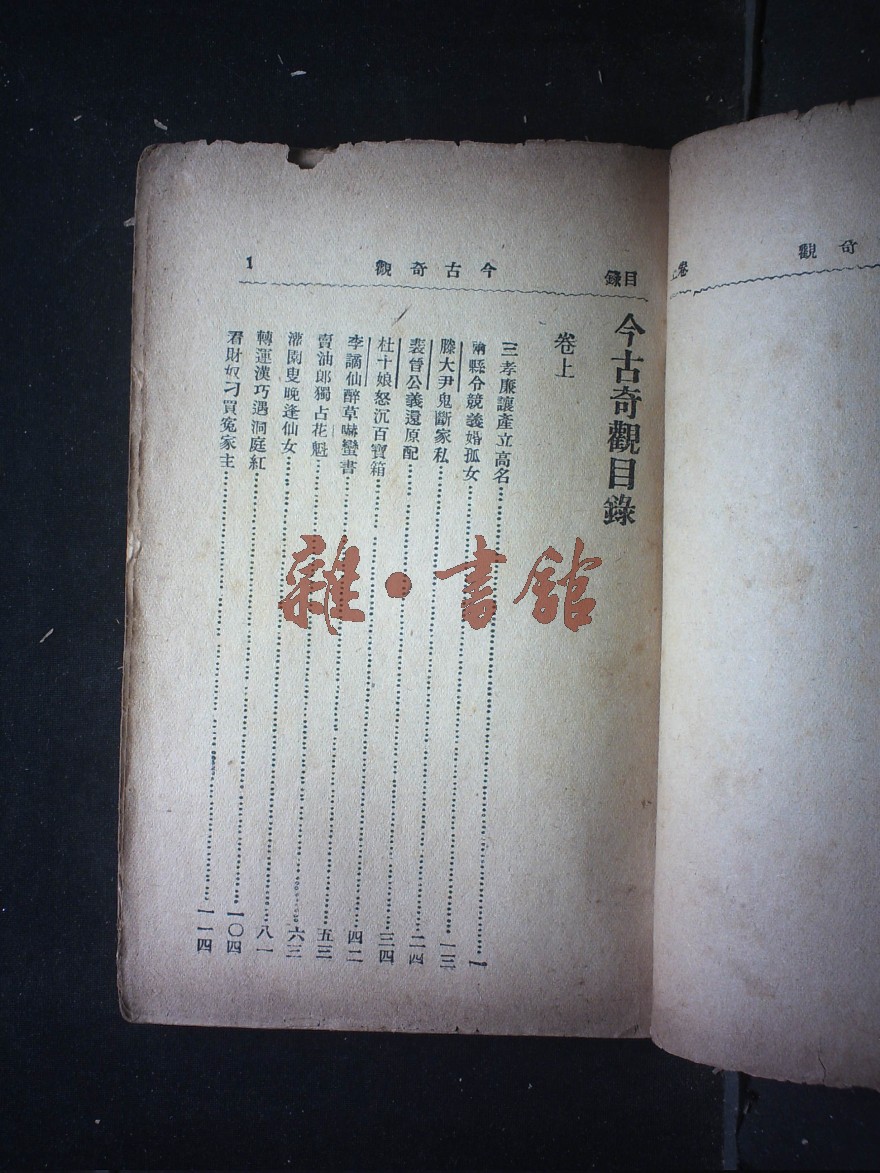 卷上 奇觀
目錄 今古奇觀 1
今古奇觀目錄
卷上
三孝廉讓產立高名…………一
兩縣令競義婚孤女…………一三
滕大尹鬼斷家私…………二四
裴晉公義還原配…………三四
杜十娘怒沉百寶箱…………四二
李謫仙醉草嚇蠻書…………五三
賣油郎獨占花魁…………六三
灌園叟晚逢仙女…………八一
轉運漢巧遇洞庭紅…………一〇四
看財奴刁買冤家主…………一一四
雜·書館